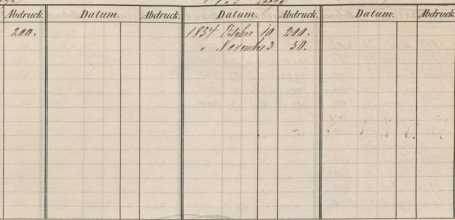 Abdruck. Datum. Abdruck. Datum. Abdruck. Datum. Abdruck.
200. 1857 10 200.
" November 3 50.